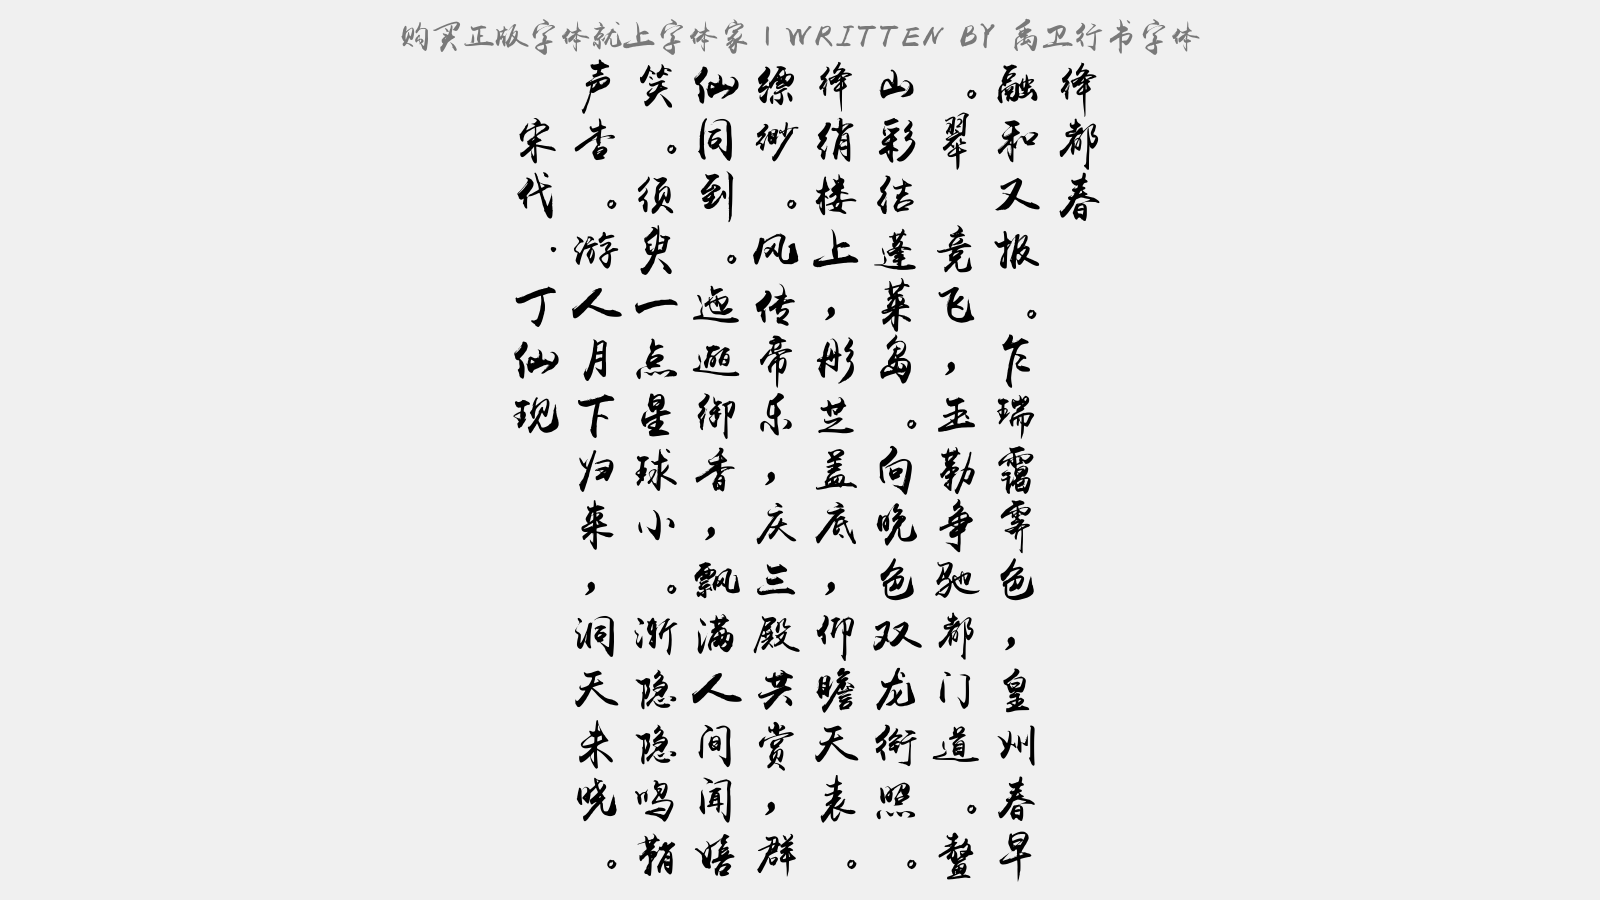 购买正版字体就上字体家 | WRITTEN BY 禹卫行书字体
绛都春
融和又报。乍瑞霭霁色，皇州春早
。翠　竞飞，玉勒争驰都门道。鳌
山彩结蓬莱岛。向晚色双龙衔照。
绛绡楼上，彤芝盖底，仰瞻天表。
缥缈。风传帝乐，庆三殿共赏，群
仙同到。迤逦御香，飘满人间闻嬉
笑。须臾一点星球小。渐隐隐鸣鞘
声杳。游人月下归来，洞天未晓。
宋代·丁仙现